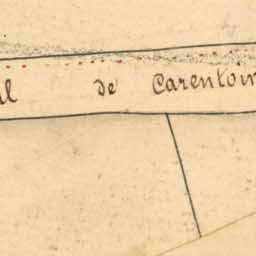 al de Carentoir